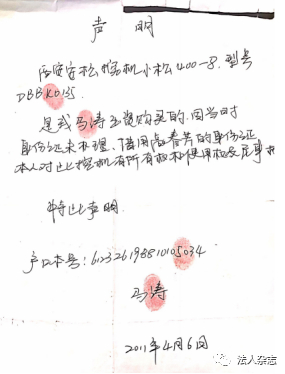 声 明
西安安松挖机小松400-8.型号
DBBK0135.
是我马涛出资购买的.因当时
身份证未办理、借用高春芳的身份证
本人对此挖机有所有权和使用权及
特此声明.
户口本号:612326198810105034
马涛
2011年4月6日
法人杂志